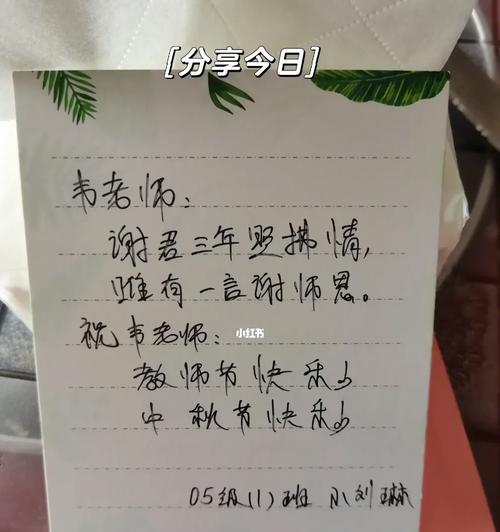 [分享今日]
韦老师：
谢君三年照拂情，
唯有一言谢师恩。
祝韦老师：
小红书
教师节快乐！
中秋节快乐！
05级(1)班 小刘琳